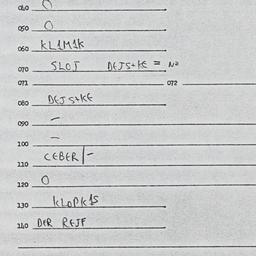 040 O
050 O
060 KLAMAK
070 SLOJ DEJSTKE = Nº
071 072
080 DEJSTKE
090 –
100 –
110 CEBER/-
120 O
130 KLOPKAS
140 DER REJF